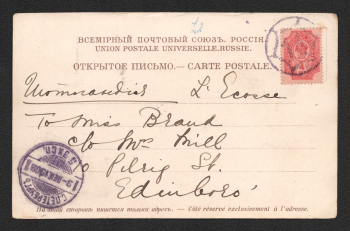 ВСЕМІРНЫЙ ПОЧТОВЫЙ СОЮЗЪ. РОССІЯ.
UNION POSTALE UNIVERSELLE. RUSSIE.
ОТКРЫТОЕ ПИСЬМО.— CARTE POSTALE.
Шотландія L'Ecosse
To Miss Braud
c/o Mrs Mill
Pilrig St.
Edinboro'
С.ПЕТЕРБУРГЪ
На этой сторонѣ пишется только адресъ. — Côté réservé exclusivement à l'adresse.